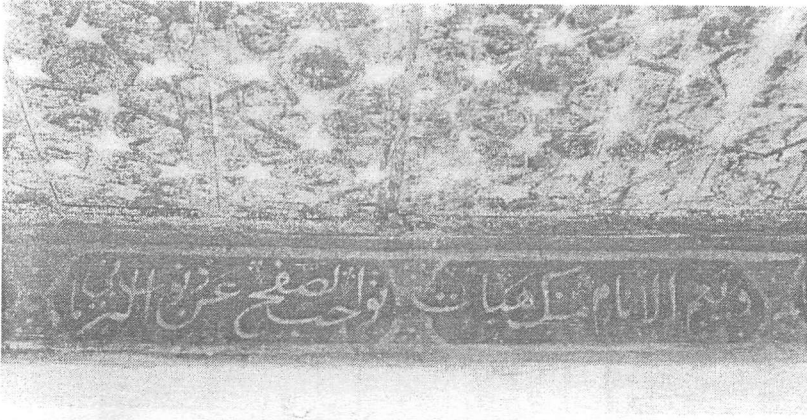 وتعم الانام منك هبات توجب الصفح عن ذنوب البرايا